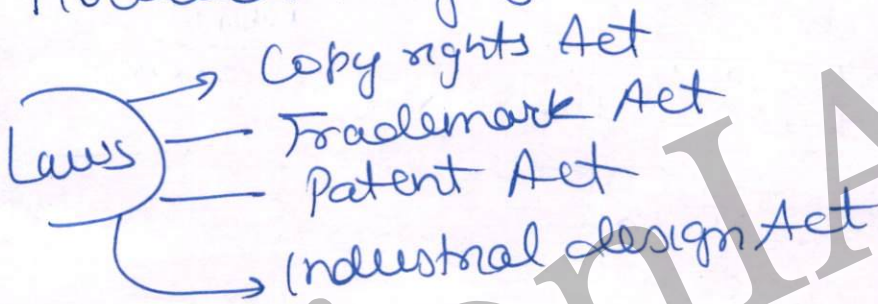 Copy rights Act
Laws
Trademark Act
Patent Act
Industrial design Act